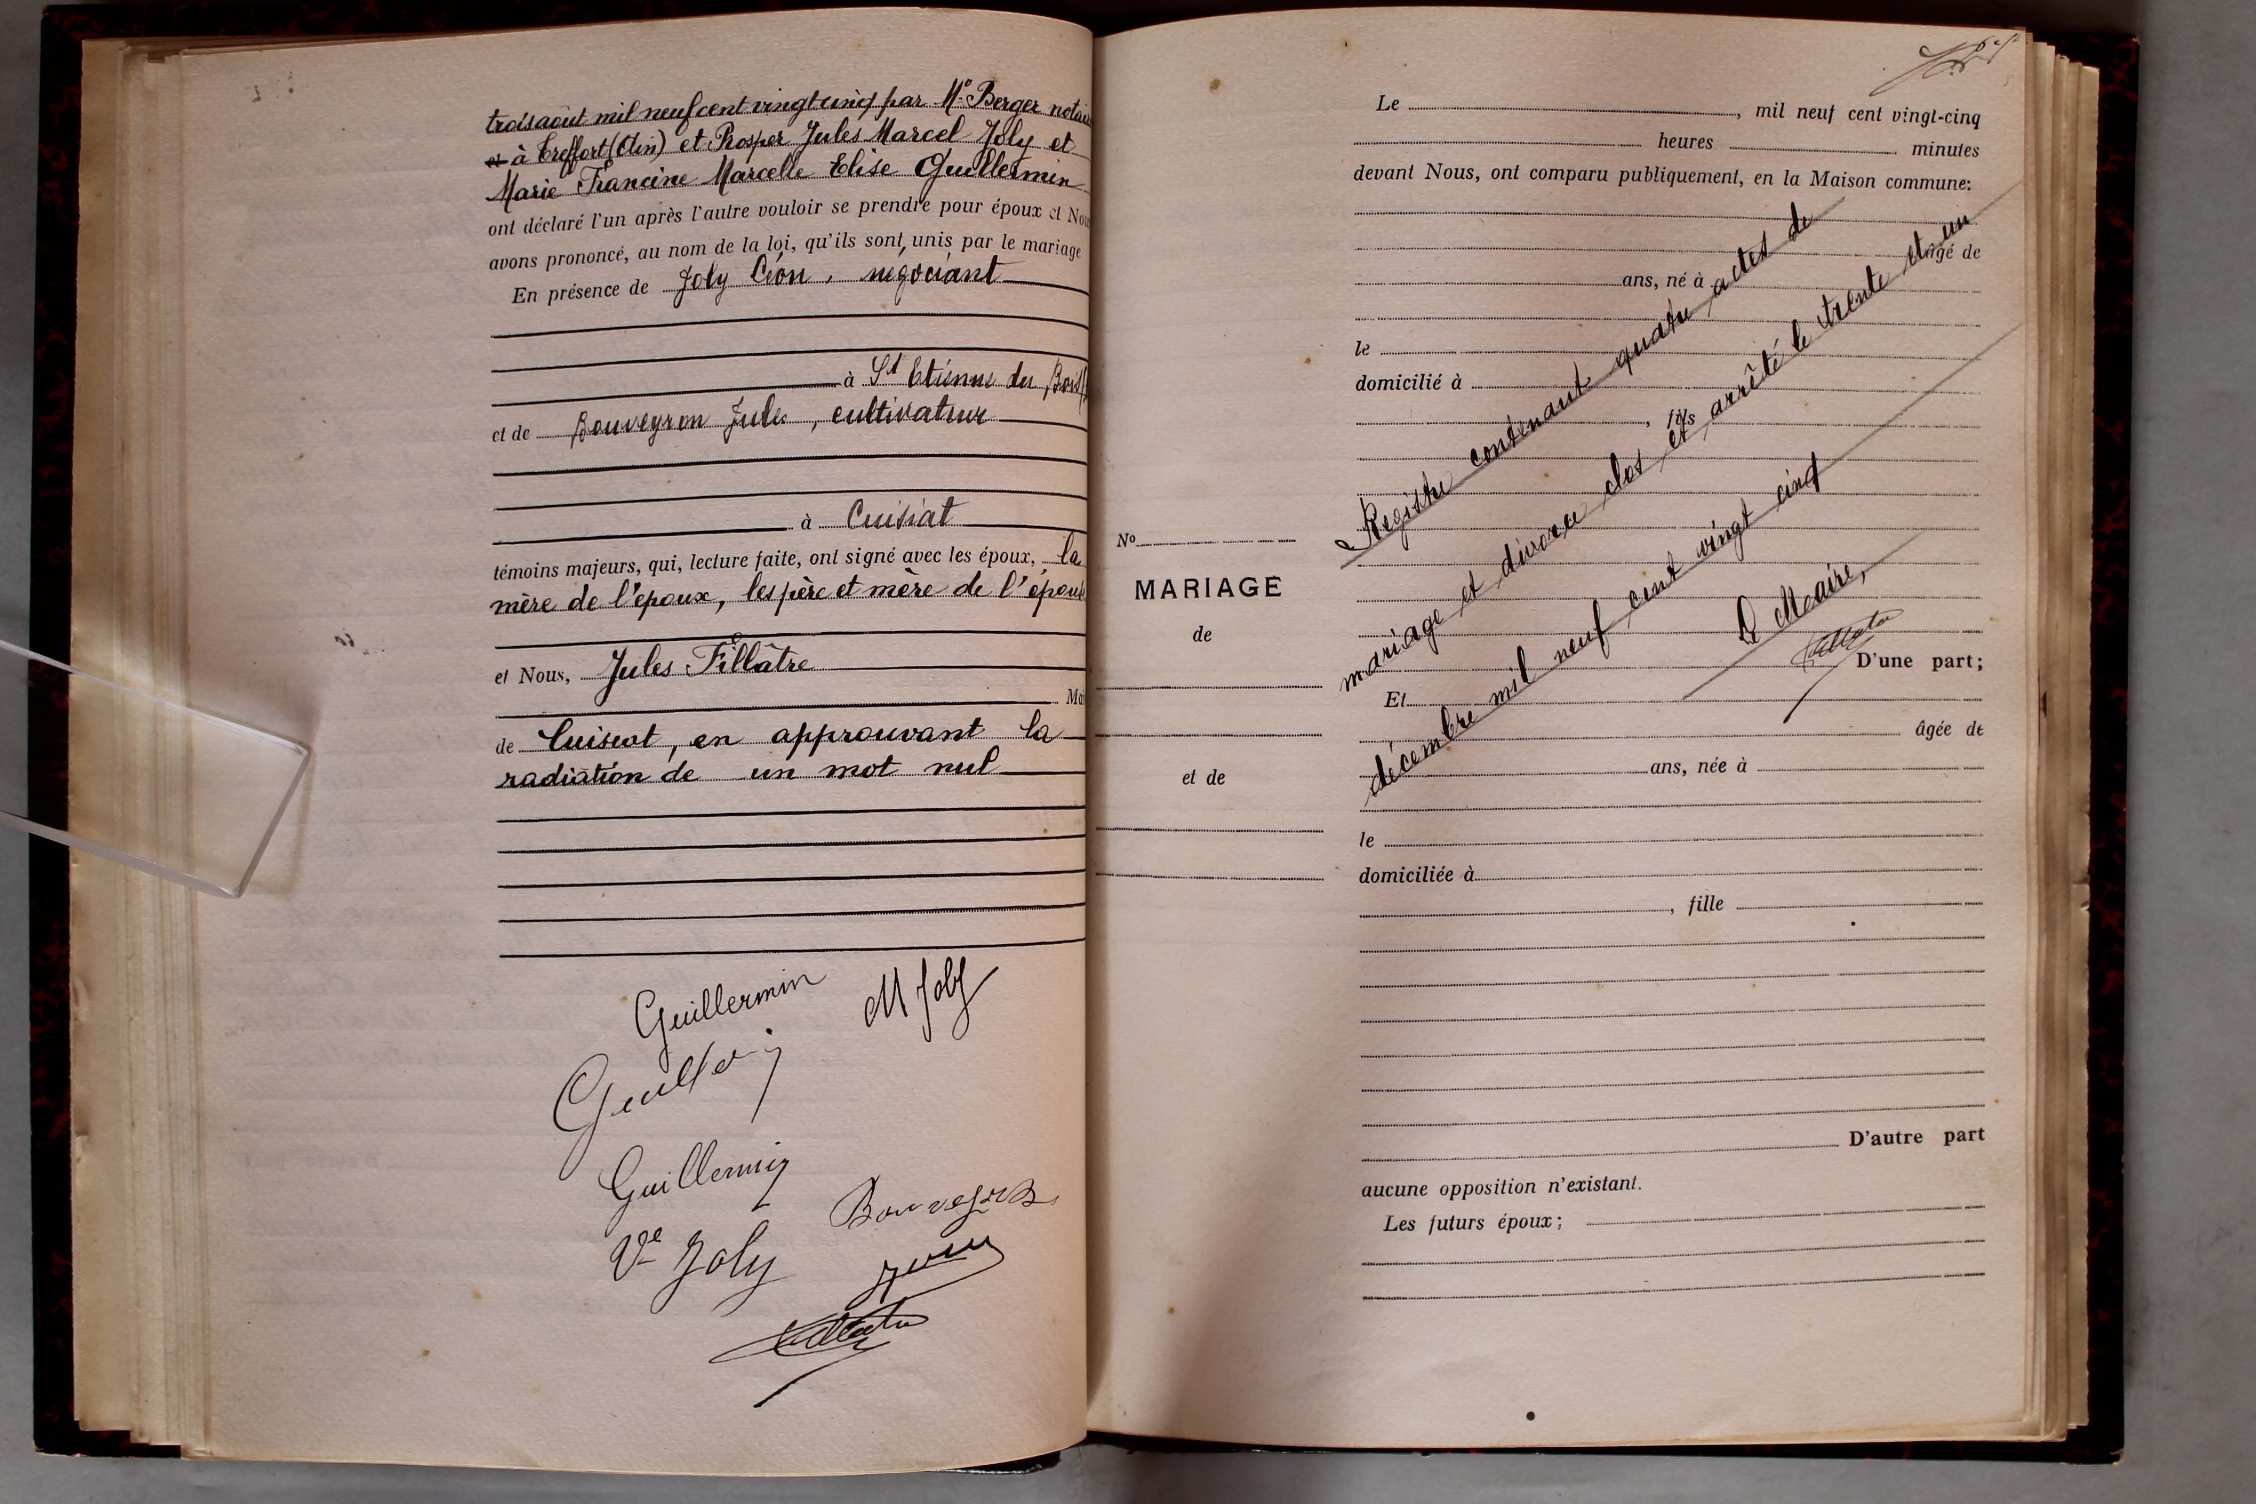 troisaout mil neuf cent vingt cinq par Me Berger notaire
et à Treffort (Ain) et Prosper Jules Marcel Joly et
Marie Francine Marcelle Elise Guillermin
ont déclaré l'un après l'autre vouloir se prendre pour époux et Nous
avons prononcé, au nom de la loi, qu'ils sont unis par le mariage
En présence de Joly Léon, négociant
à St Etienne du Bois
et de Bouveyron Jules, cultivateur
à Cuisiat
témoins majeurs, qui, lecture faite, ont signé avec les époux, la
mère de l'époux, les père et mère de l'épouse
et Nous, Jules Fillâtre
Mai
de Cuisiat, en approuvant la
radiation de un mot nul
Guillermin
M Joly
Guillermin
Ve Joly
Bouveyron
Le , mil neuf cent vingt-cinq
heures minutes
devant Nous, ont comparu publiquement, en la Maison commune:
âgé de
ans, né à
le
domicilié à
, fils
Registre contenant quatre actes de
mariage et divorce clos et arrêté le trente et un
décembre mil neuf cent vingt cinq
Le Maire,
No
MARIAGE
de
et de
D'une part;
Et
âgée de
ans, née à
le
domiciliée à
, fille
D'autre part
aucune opposition n'existant.
Les futurs époux;